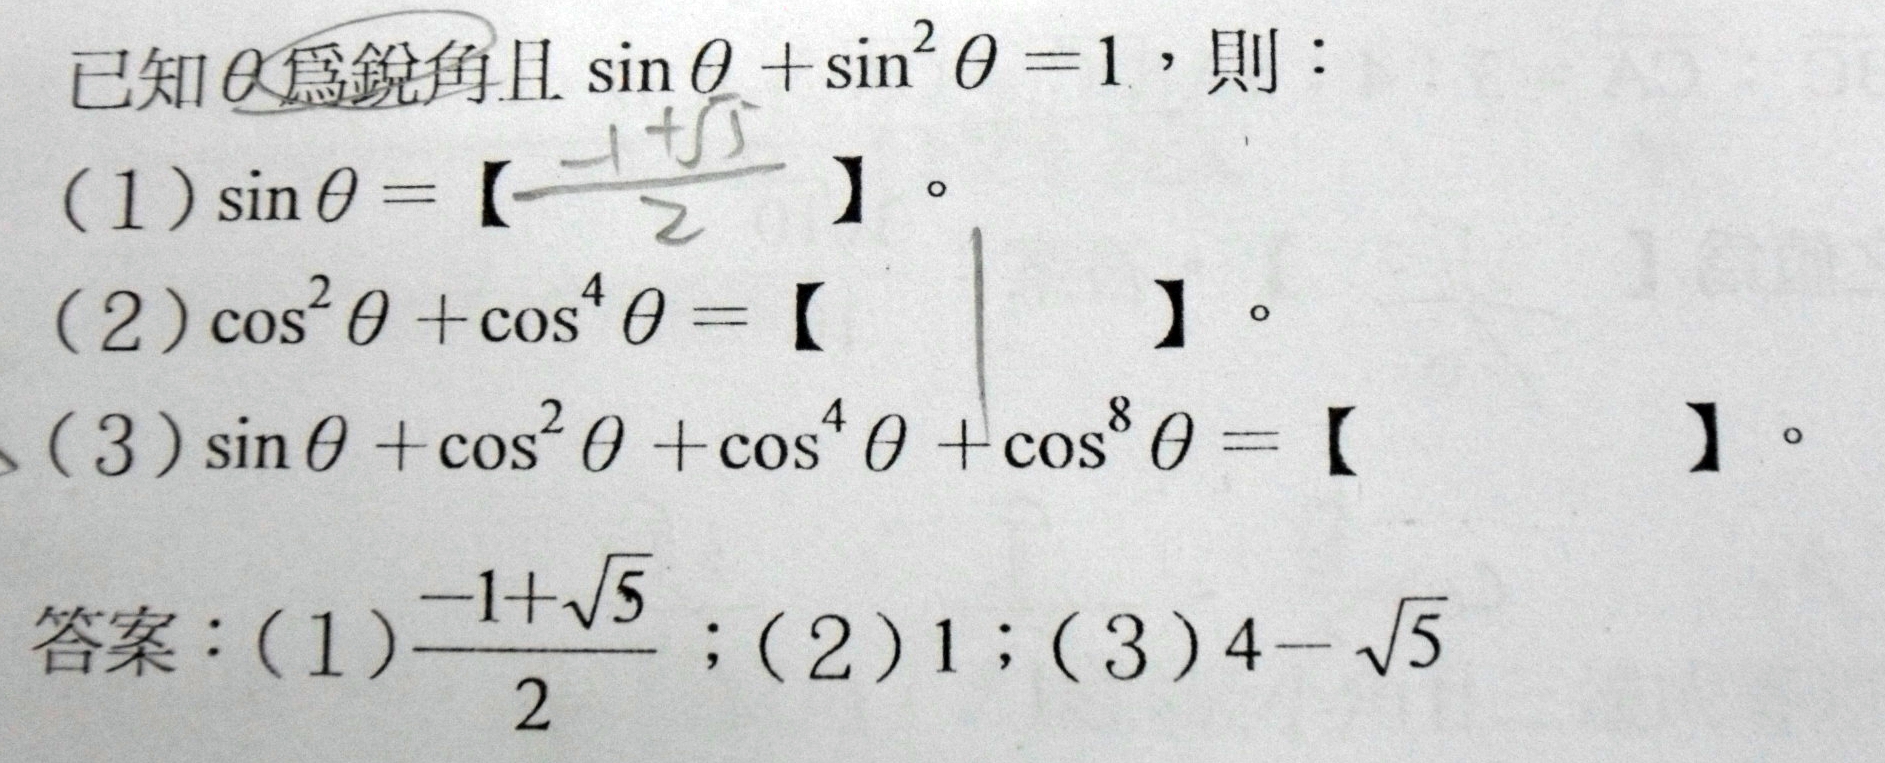 已知θ為銳角且 sinθ+sin²θ=1,則:
(1)sinθ=【 -1+√5/2 】。
(2)cos²θ+cos⁴θ=【 】。
(3)sinθ+cos²θ+cos⁴θ+cos⁸θ=【 】。
答案:(1) -1+√5/2 ;(2)1;(3)4-√5